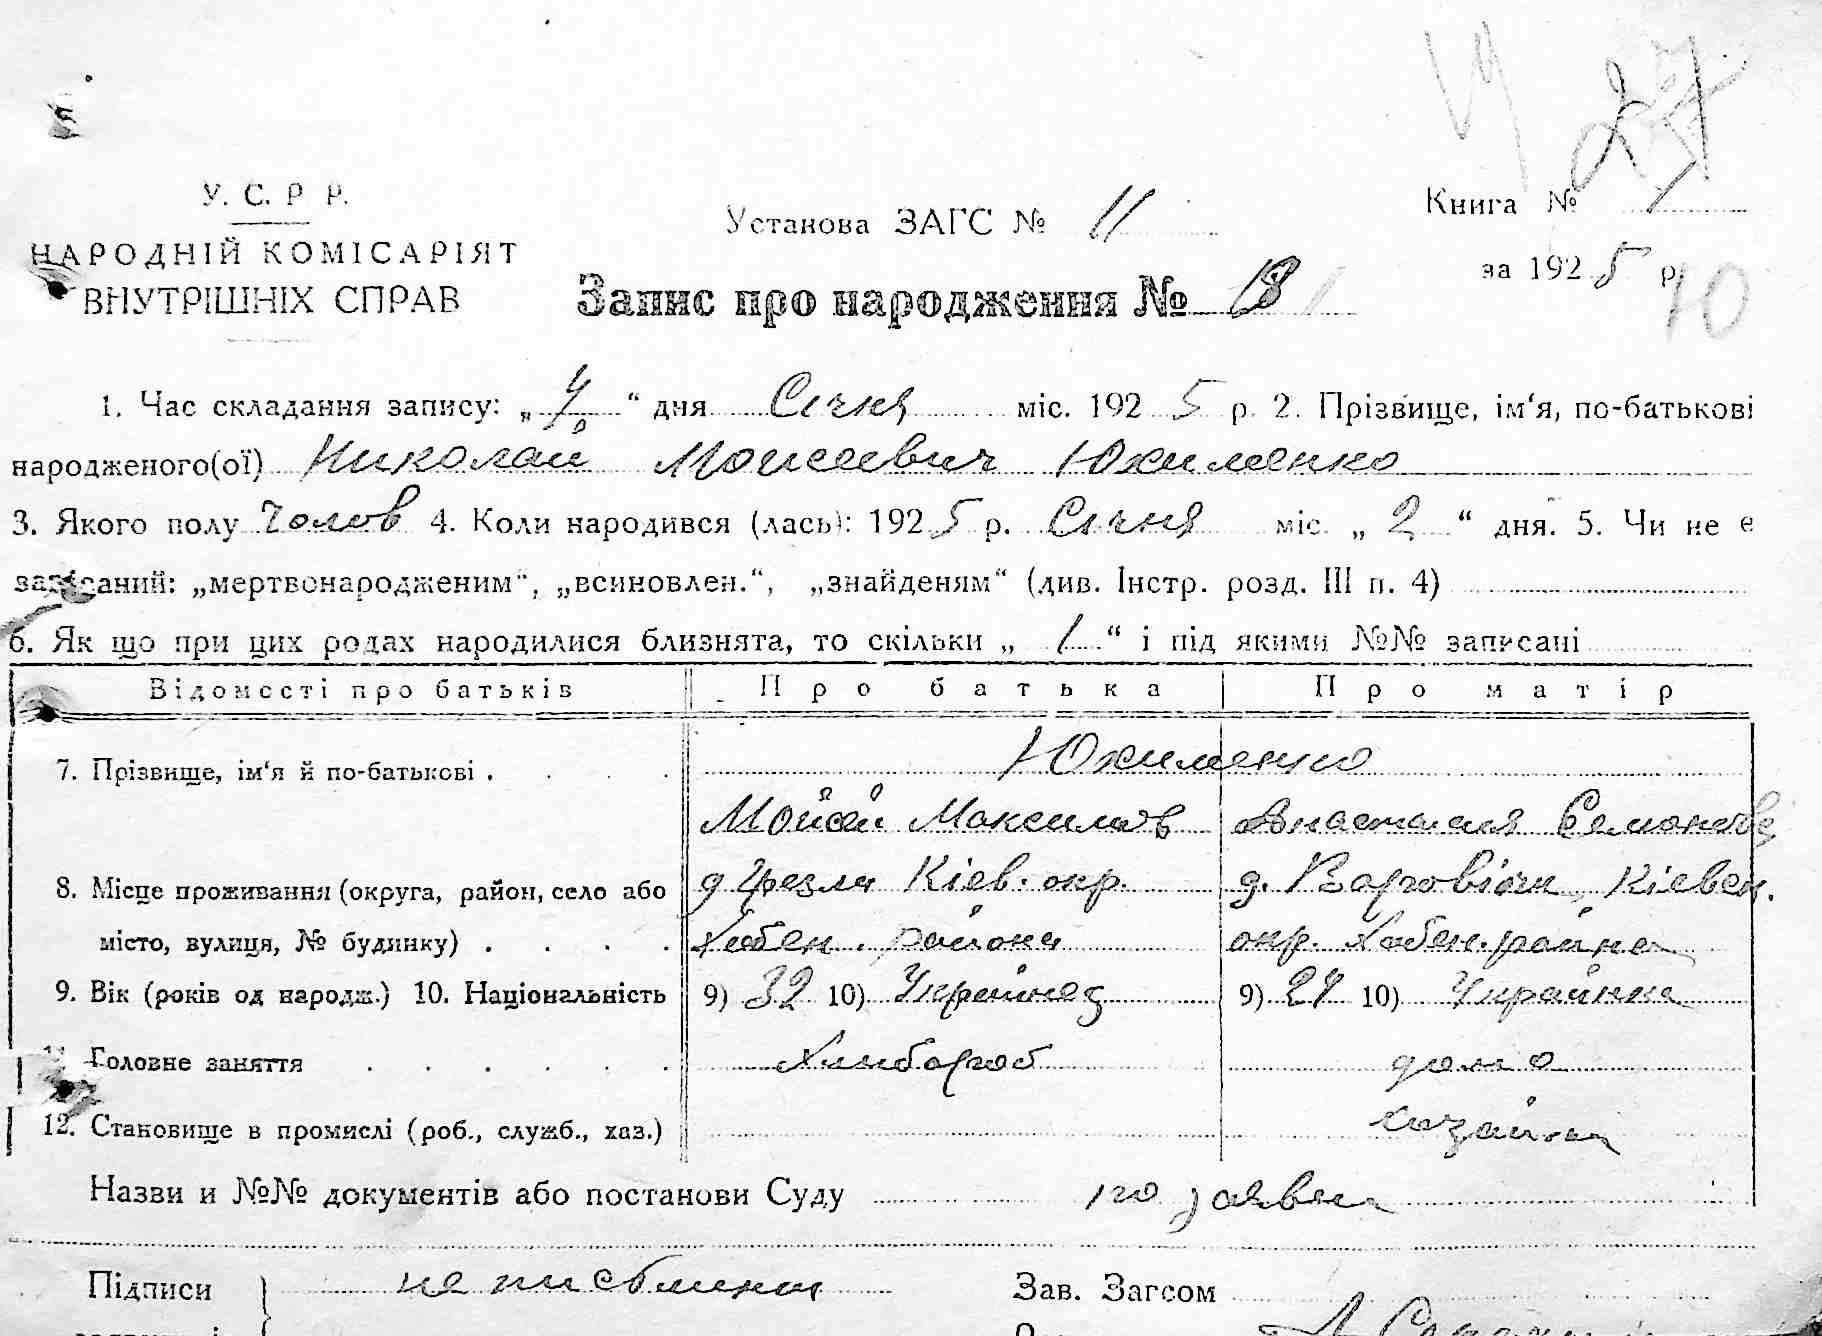 27
У. С. Р Р.
НАРОДНІЙ КОМІСАРІЯТ
ВНУТРІШНІХ СПРАВ
Установа ЗАГС № 11
Книга № 1
за 1925 р.
10
Запис про народження № 18
1. Час складання запису: „ 4 “ дня Січня міс. 1925 р. 2. Прізвище, ім‘я, по-батькові
народженого(ої) Николай Моисеевич Юхименко
3. Якого полу Чолов 4. Коли народився (лась): 1925 р. Січня міс. „ 2 “ дня. 5. Чи не є
записаний: „мертвонародженим“, „всиновлен.“, „знайденям“ (див. Інстр. розд. III п. 4)
6. Як що при цих родах народилися близнята, то скільки „ 1 “ і під якими №№ записані
Відомості про батьків Про батька Про матір
7. Прізвище, ім‘я й по-батькові . Юхименко
Мойсей Максимов Анастасия Семонов
8. Місце проживання (округа, район, село або д Грезля Кіев. окр. д. Варовічи, Кіевск.
місто, вулиця, № будинку) . Хабен. района окр. Хабен. района
9. Вік (років од народж.) 10. Національність 9) 32 10) Українец 9) 24 10) Українка
Головне заняття Хлибороб домо
12. Становище в промислі (роб., служб., хаз.) хазайка
Назви и №№ документів або постанови Суду по заявы
Підписи не писбменни Зав. Загсом